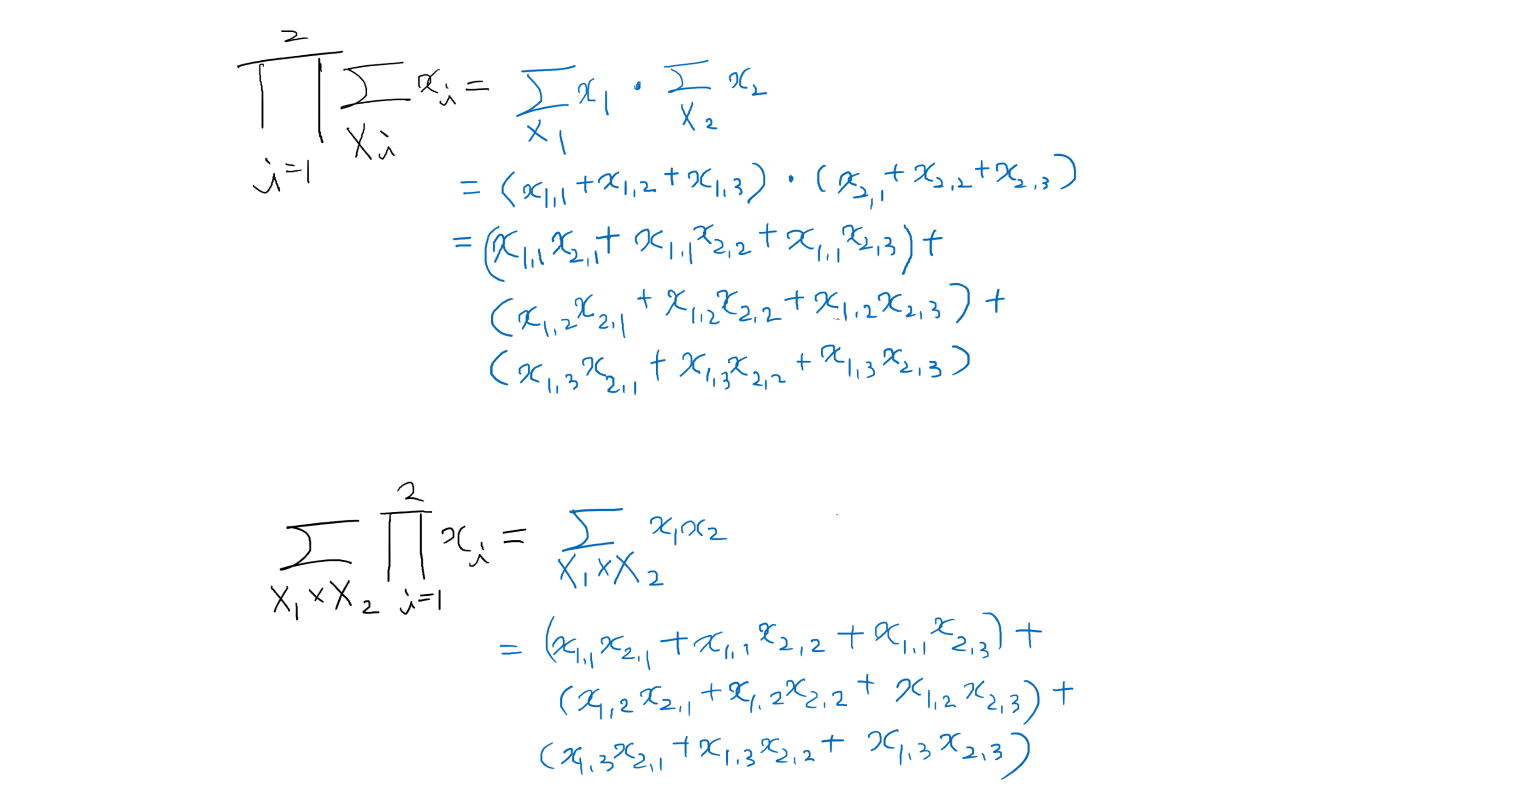 \prod_{i=1}^{2} \sum_{X_i} x_i = \sum_{X_1} x_1 \cdot \sum_{X_2} x_2
= (x_{1,1} + x_{1,2} + x_{1,3}) \cdot (x_{2,1} + x_{2,2} + x_{2,3})
= (x_{1,1} x_{2,1} + x_{1,1} x_{2,2} + x_{1,1} x_{2,3}) +
(x_{1,2} x_{2,1} + x_{1,2} x_{2,2} + x_{1,2} x_{2,3}) +
(x_{1,3} x_{2,1} + x_{1,3} x_{2,2} + x_{1,3} x_{2,3})
\sum_{X_1 \times X_2} \prod_{i=1}^{2} x_i = \sum_{X_1 \times X_2} x_1 x_2
= (x_{1,1} x_{2,1} + x_{1,1} x_{2,2} + x_{1,1} x_{2,3}) +
(x_{1,2} x_{2,1} + x_{1,2} x_{2,2} + x_{1,2} x_{2,3}) +
(x_{1,3} x_{2,1} + x_{1,3} x_{2,2} + x_{1,3} x_{2,3})